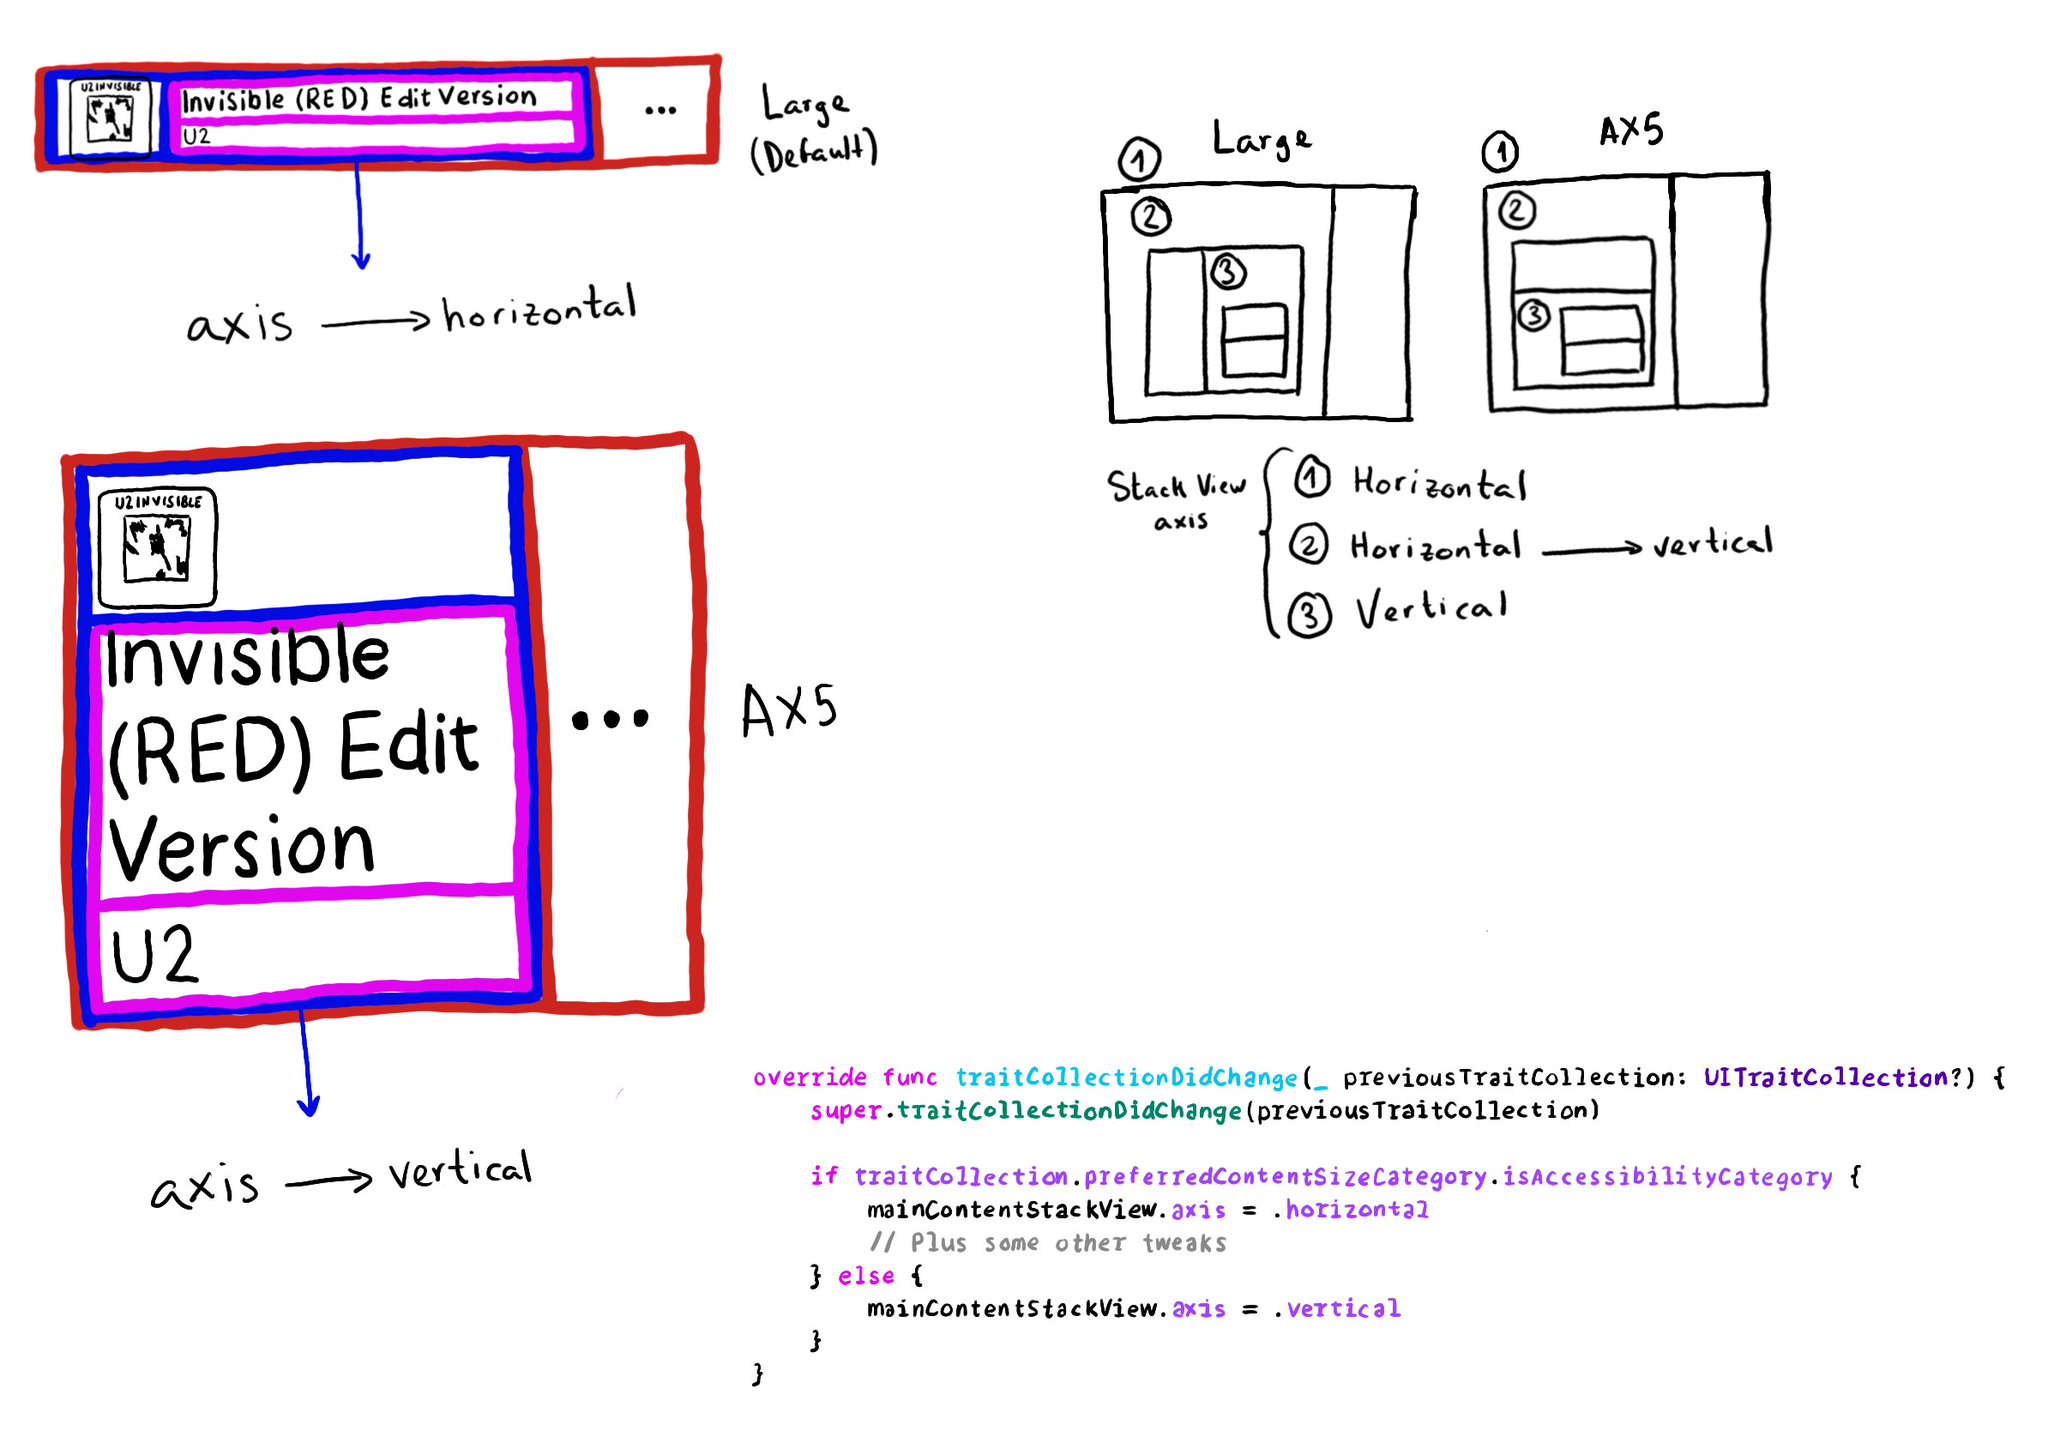 U2 INVISIBLE
Invisible (RED) Edit Version
U2
...
Large
(Default)
axis → horizontal
U2 INVISIBLE
Invisible
(RED) Edit
Version
U2
...
AX5
axis → vertical
Large
1
2
3
AX5
1
2
3
Stack View
axis
1 Horizontal
2 Horizontal → vertical
3 Vertical
override func traitCollectionDidChange(_ previousTraitCollection: UITraitCollection?) {
super.traitCollectionDidChange(previousTraitCollection)
if traitCollection.preferredContentSizeCategory.isAccessibilityCategory {
mainContentStackView.axis = .horizontal
// Plus some other tweaks
} else {
mainContentStackView.axis = .vertical
}
}